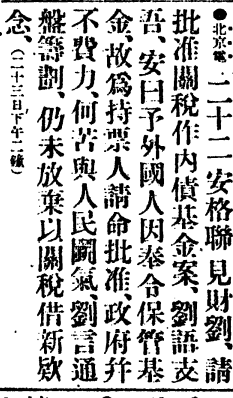 ●北京電 二十二安格聯見財劉、請
批准關稅作內債基金案、劉語支
吾、安曰予外國人因奉令保管基
金、故爲持票人請命批准、政府幷
不費力、何苦與人民鬭氣、劉言通
盤籌劃、仍未放棄以關稅借新欵
念、（二十三日下午二鐘）